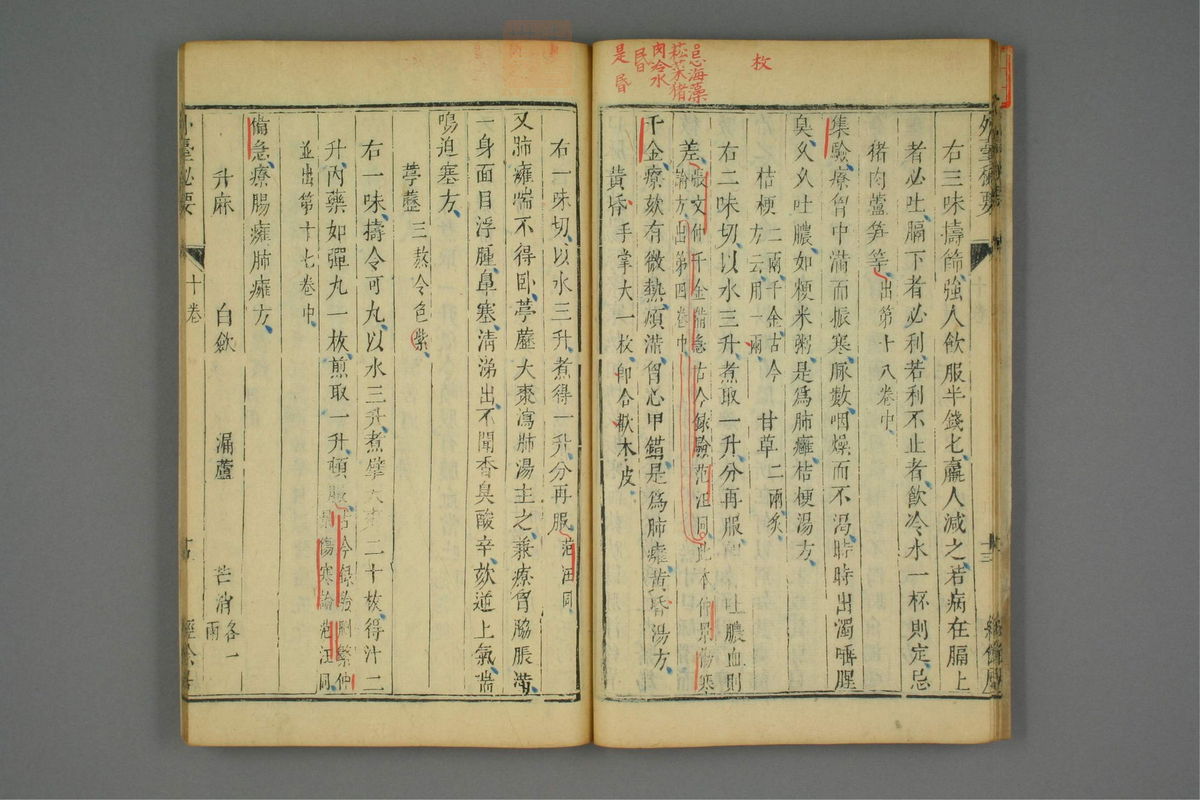 枚
忌海藻
菘菜猪
肉冷水
昏
是昏
外臺秘要
右三味擣篩強人飲服半錢匕羸人減之若病在膈上
者必吐膈下者必利若利不止者飲冷水一杯則定忌
猪肉蘆笋等出第十八卷中
集驗療胷中滿而振寒脈數咽燥而不渴時時出濁唾腥
臭久久吐膿如粳米粥是爲肺癰桔梗湯方
桔梗二兩千金古今
方云用一兩
甘草二兩炙
右二味切以水三升煮取一升分再服 吐膿血則
差張文仲千金備急古今録驗范汪同此本仲景傷寒
論方出第四卷中
千金療欬有微熱煩滿胷心甲錯是爲肺癰黄昏湯方
黄昏手掌大一枚卽合歡木皮
右一味切以水三升煮得一升分再服范汪同
又肺癰喘不得卧葶藶大棗瀉肺湯主之兼療胷脇脹滿
一身面目浮腫鼻塞清涕出不聞香臭酸辛欬逆上氣喘
鳴迫塞方
葶藶三熬令色紫
右一味擣令可丸以水三升煮擘大棗二十枚得汁二
升内藥如彈丸一枚煎取一升頓服古今録驗刪繁仲
景傷寒論范汪同
並出第十七卷中
備急療腸癰肺癰方
升麻 白歛 漏蘆 芒消各一
兩
外臺秘要
十卷
經餘居